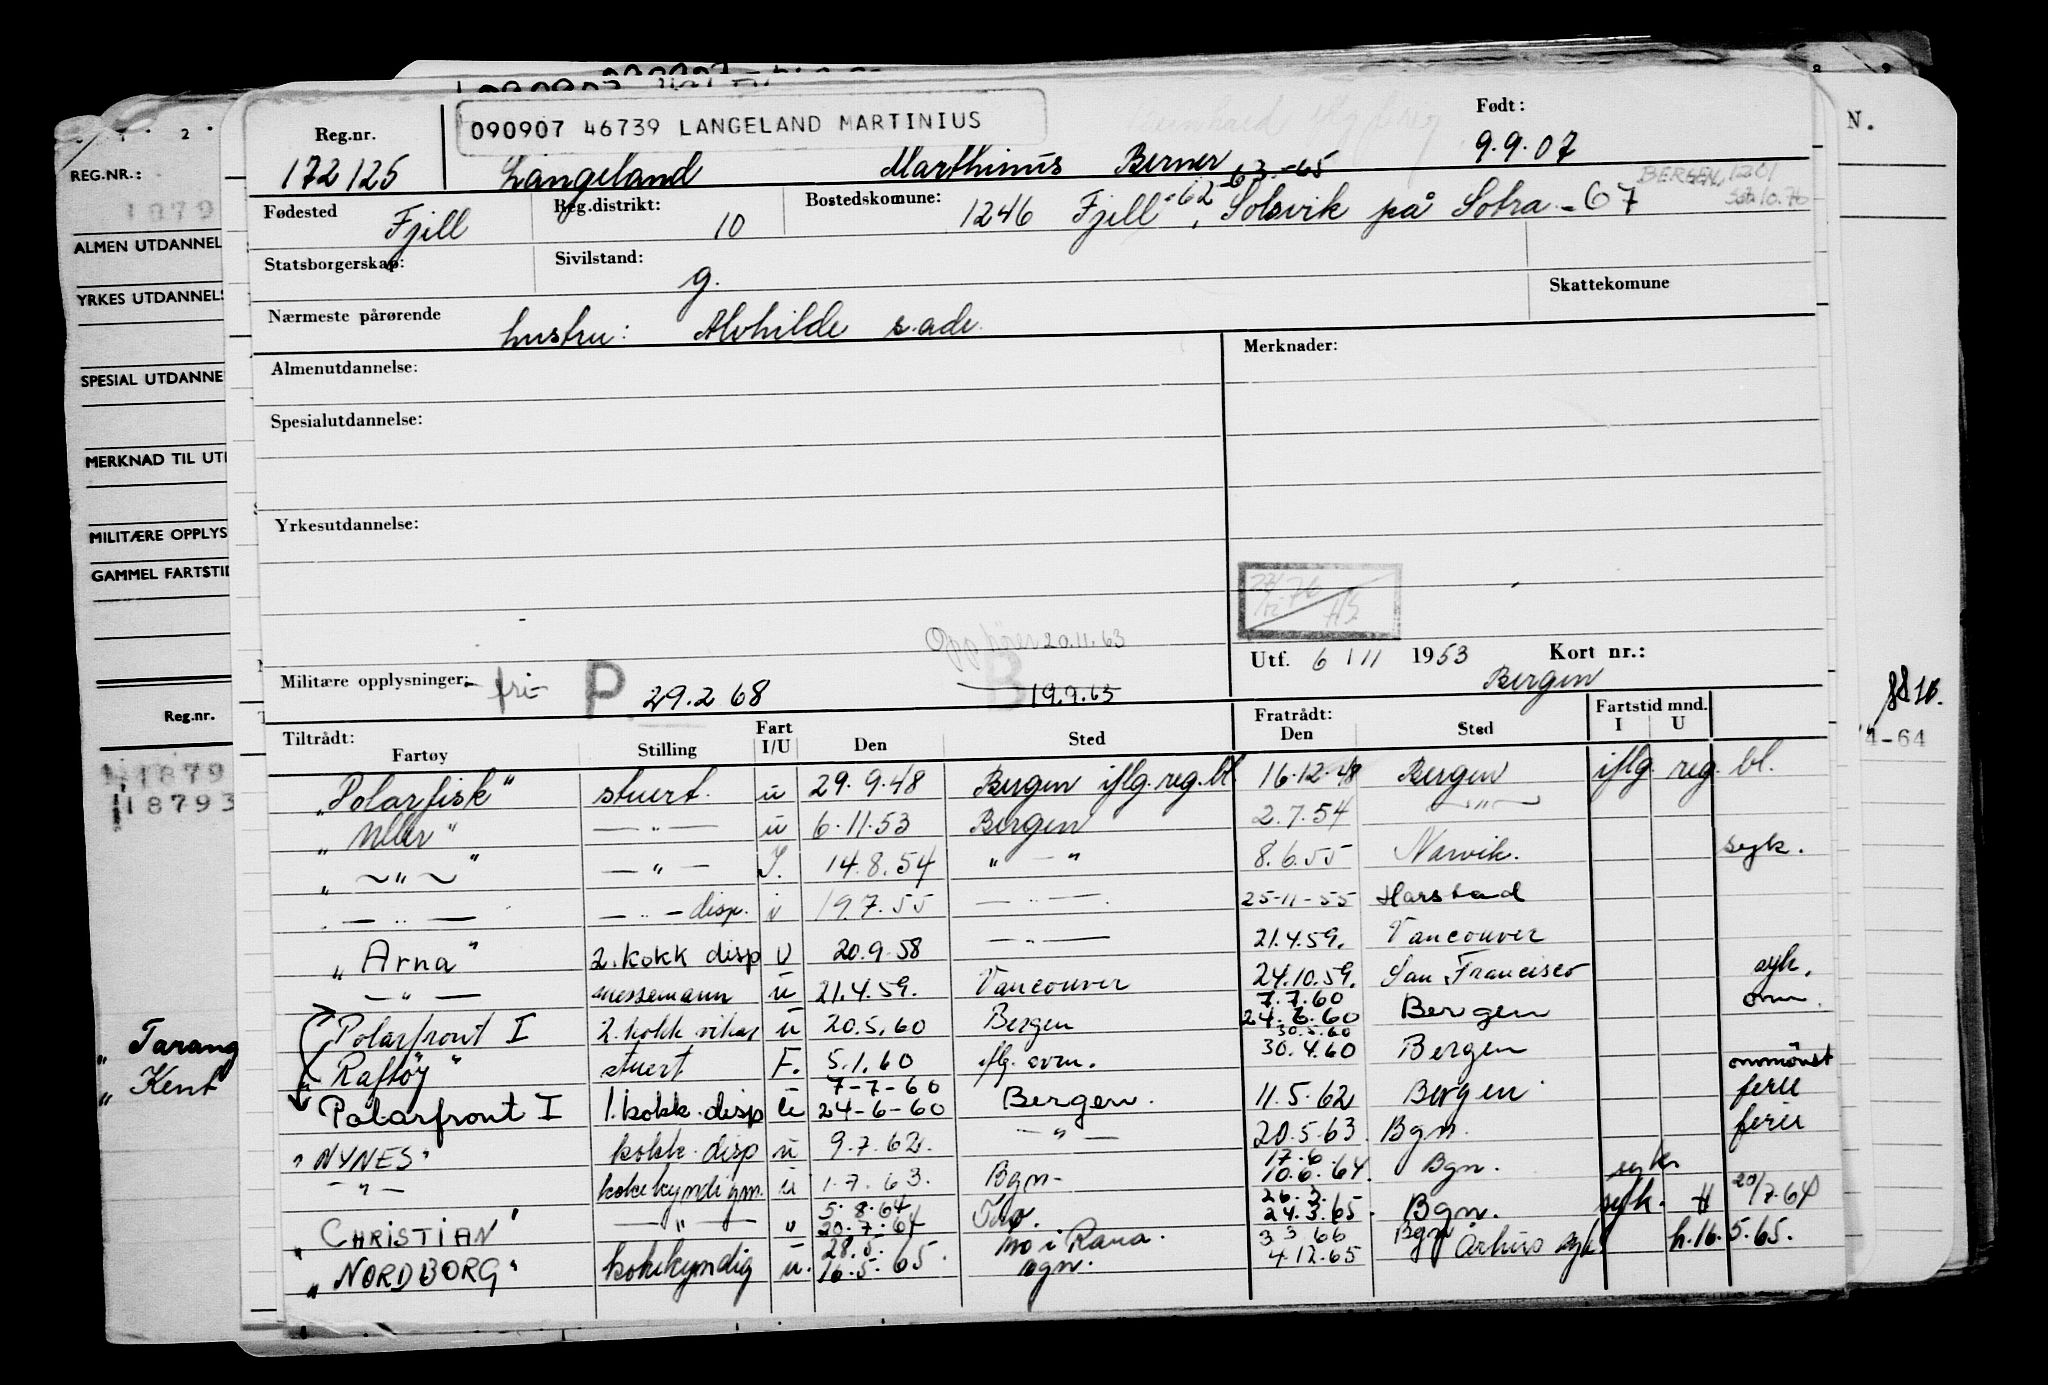 090907 46739 LANGELAND MARTINIUS
Reg.nr. 172125
Langeland Marthinus Berner
Født: 9.9.07
63-65
BERGEN, 1201
Fødested Fjell
Reg.distrikt: 10
Bostedskomune: 1246 Fjell -62, Solsvik på Sotra -67
Statsborgerskap:
Sivilstand: g.
Skattekomune
Nærmeste pårørende hustru: Alvhilde s.adr.
Almenutdannelse:
Merknader:
Spesialutdannelse:
Yrkesutdannelse:
20.11.63
Militære opplysninger: -fri- P 29.2 68 B 19.9.63
Utf. 6/11 1953 Kort nr.:
Bergen
Tiltrådt: Fratrådt: Fartstid mnd.
Fartøy Stilling Fart I/U Den Sted Den Sted I U
"Polarfisk" stuert. u 29.9.48 Bergen iflg.reg.bl 16.12.48 Bergen iflg. reg. bl.
— " — u 6.11.53 Bergen 2.7.54 — " —
" — " — " — " — I. 14.8.54 " — " 8.6.55 Narvik. syk.
— " — — " — disp. i 19.7.55 — " — 25-11-55 Harstad
"Arna" 2.kokk disp U 20.9.58 — " — 21.4.59. Vancouver
— " — messemann u 21.4.59. Vancouver 24.10.59. San Francisco syk.
Polarfront I 2.kokk vikar u 20.5.60 Bergen 7.7.60 24.6.60 Bergen
Raftöy" stuert F. 5.1.60 iflg. ovm. 30.5.60 30.4.60 Bergen
Polarfront I 1.kokk.disp u 7-7-60 24-6-60 Bergen. 11.5.62 Bergen ferie
"NYNES" kokk.disp u 9.7.62. — " — 20.5.63. Bgn. ferie
— " — kokekyndigm. u 1.7.63. Bgn- 17.6. 10.6.64. Bgn. syk
"CHRISTIAN" — " — " 5.8.64 20.7.64 26.3. 24.3.65. Bgn. syk. 20/7.64
"NORDBORG" kokekyndig u. 28.5. 16.5.65. Mo i Rana. 3 3 66 4.12.65 Bgn Århus syk h.16.5.65.
REG.NR.:
1879
ALMEN UTDANNEL
YRKES UTDANNELS
SPESIAL UTDANNE
MERKNAD TIL UT
MILITÆRE OPPLYS
GAMMEL FARTSTID
Reg.nr.
1879
18793
" Tarang
" Kent
N.
4-64